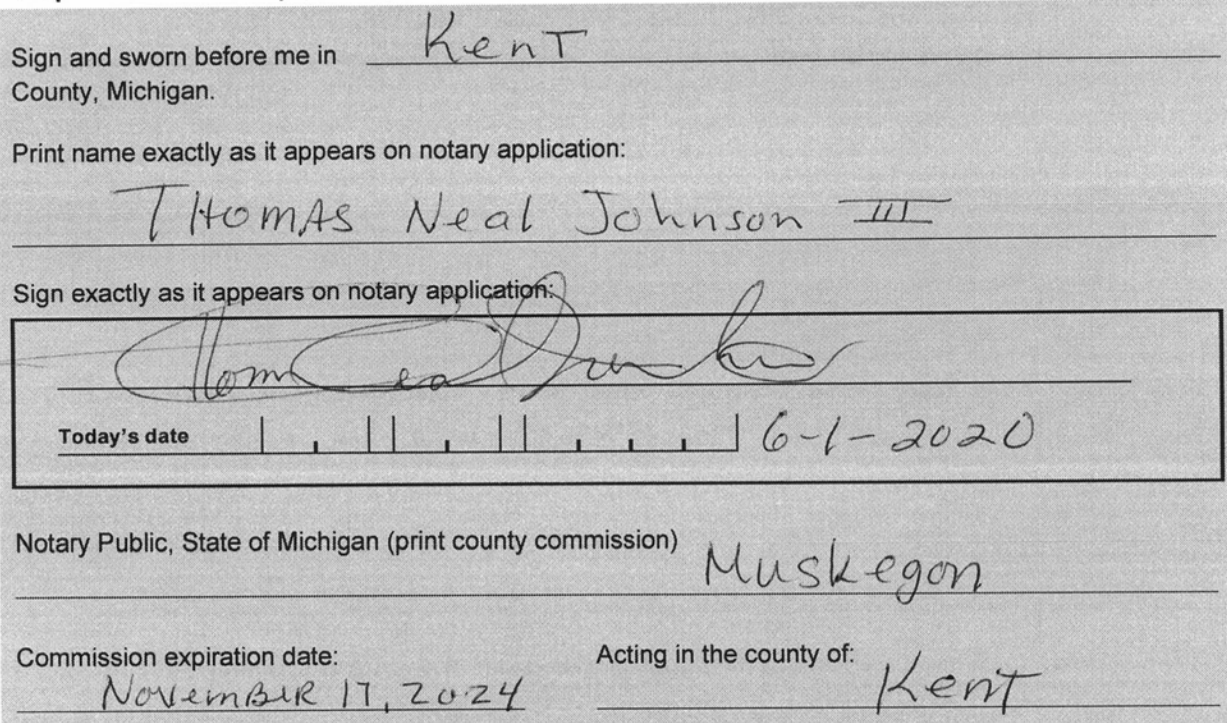 Sign and sworn before me in Kent
County, Michigan.
Print name exactly as it appears on notary application:
THOMAS Neal Johnson III
Sign exactly as it appears on notary application:
Today's date 6-1-2020
Notary Public, State of Michigan (print county commission) Muskegon
Commission expiration date: Acting in the county of:
NovemBER 17, 2024 Kent